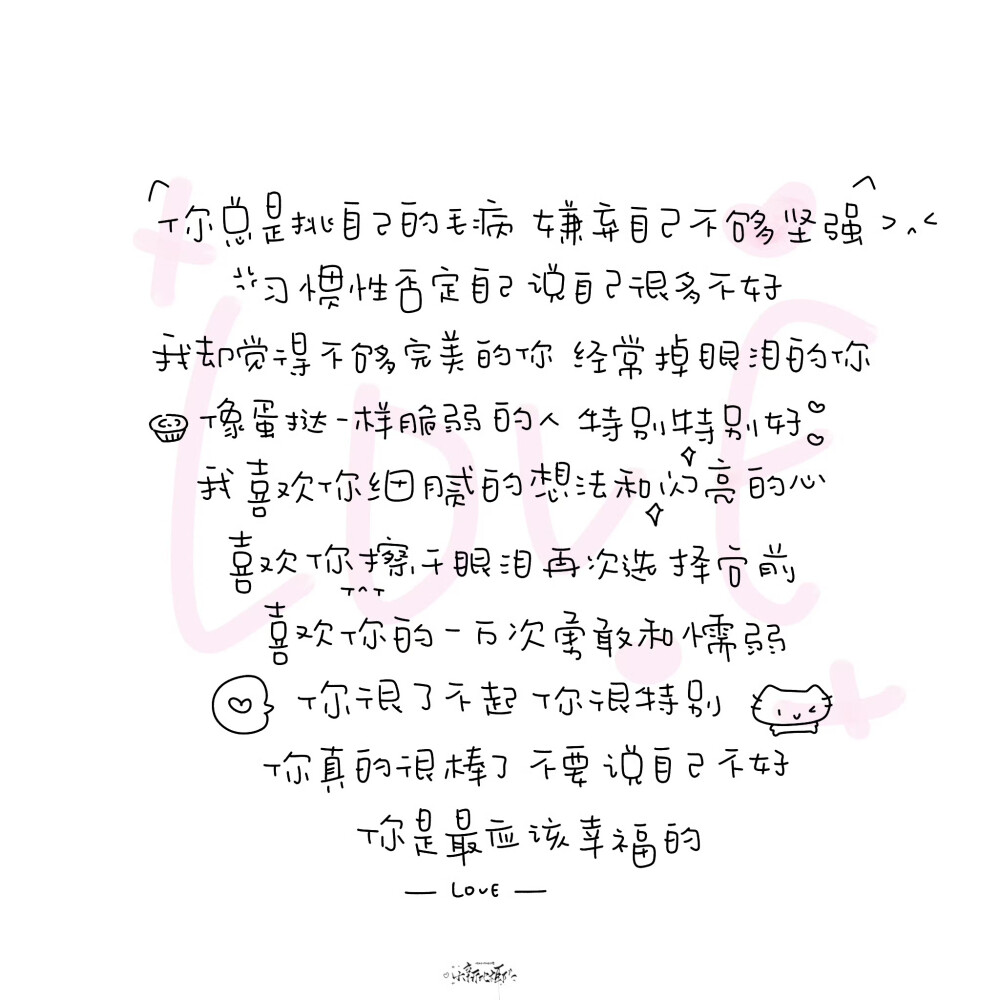 你总是挑自己的毛病 嫌弃自己不够坚强 >.<
习惯性否定自己 说自己很多不好
我却觉得不够完美的你 经常掉眼泪的你
像蛋挞一样脆弱的人 特别特别好
我喜欢你细腻的想法和闪亮的心
喜欢你擦干眼泪再次选择向前
喜欢你的一万次勇敢和懦弱
你很了不起 你很特别
你真的很棒了 不要说自己不好
你是最应该幸福的
— LOVE —
LOVE